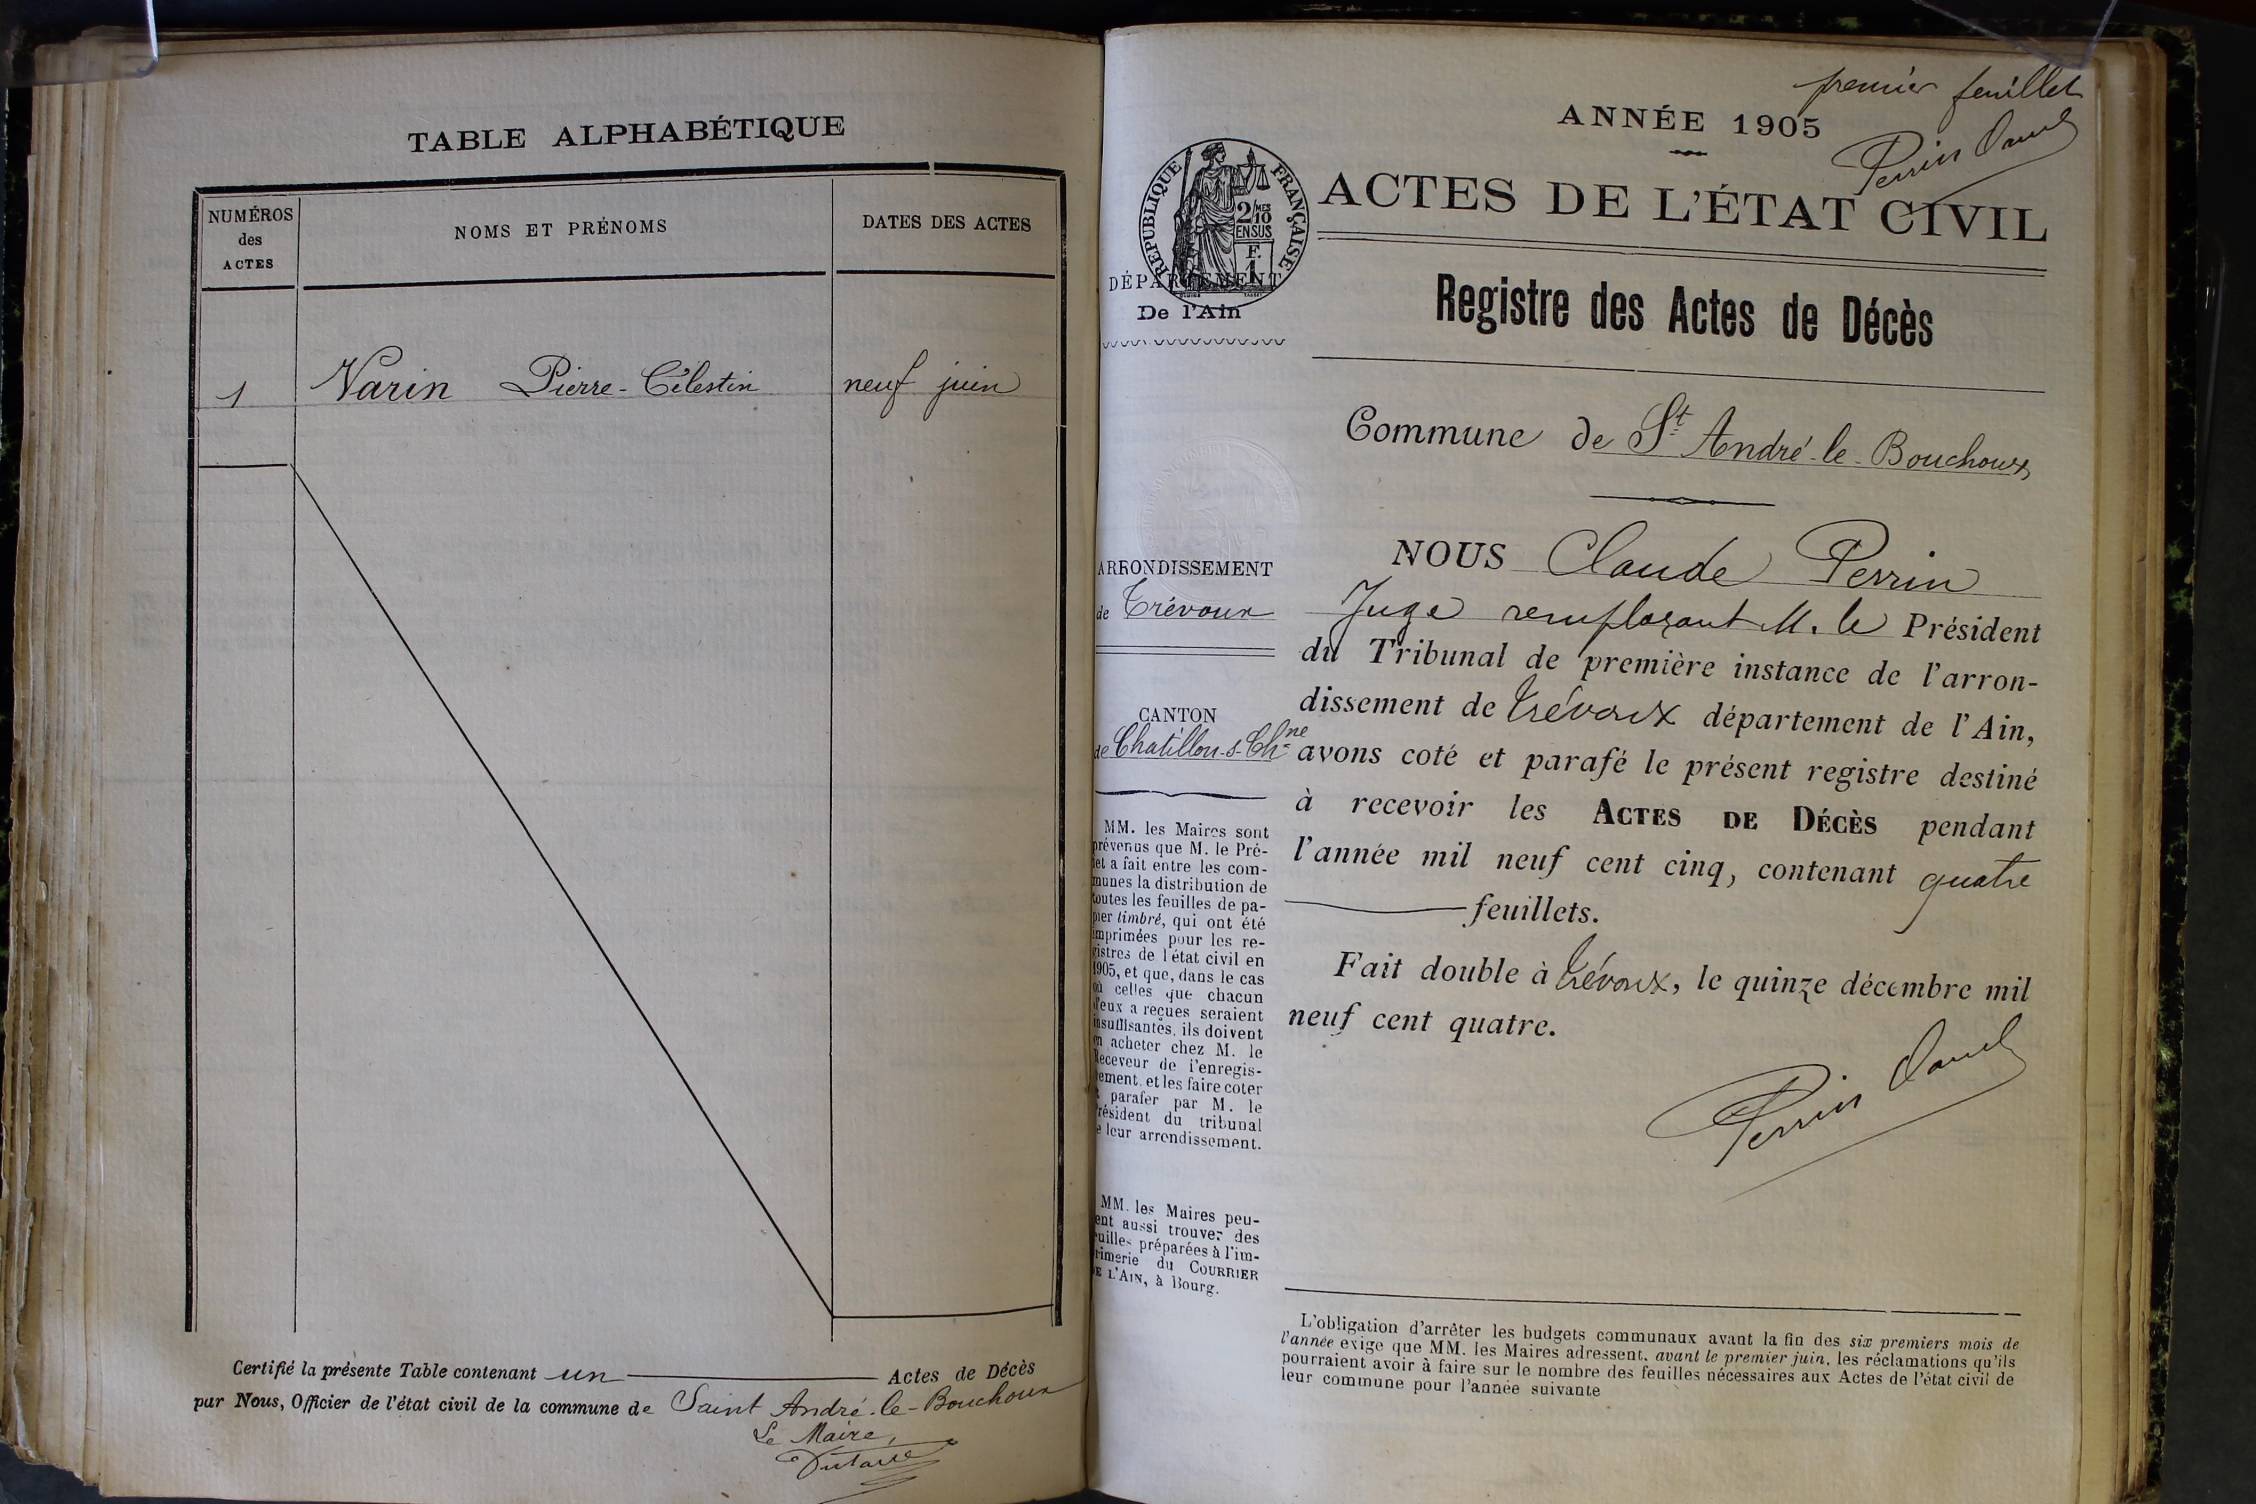 TABLE ALPHABÉTIQUE
NUMÉROS
des
ACTES
NOMS ET PRÉNOMS
DATES DES ACTES
1 Varin Pierre-Célestin neuf juin
Certifié la présente Table contenant un Actes de Décès
par Nous, Officier de l'état civil de la commune de Saint André-le-Bouchoux
Le Maire,
premier feuillet
ANNÉE 1905
Perrin
ACTES DE L'ÉTAT CIVIL
RÉPUBLIQUE FRANÇAISE
2/10
MES
EN SUS
F.
1
DÉPARTEMENT
De l'Ain
Registre des Actes de Décès
Commune de St André-le-Bouchoux
ARRONDISSEMENT
de Trévoux
CANTON
de Chatillon-s-Chne
MM. les Maires sont
prévenus que M. le Pré-
fet a fait entre les com-
munes la distribution de
toutes les feuilles de pa-
pier timbré, qui ont été
imprimées pour les re-
gistres de l'état civil en
1905, et que, dans le cas
où celles que chacun
d'eux a reçues seraient
insuffisantes, ils doivent
en acheter chez M. le
Receveur de l'enregis-
trement, et les faire coter
et parafer par M. le
Président du tribunal
de leur arrondissement.
MM. les Maires peu-
vent aussi trouver des
feuilles préparées à l'im-
primerie du COURRIER
DE L'AIN, à Bourg.
NOUS Claude Perrin
Juge remplaçant M. le Président
du Tribunal de première instance de l'arron-
dissement de Trévoux département de l'Ain,
avons coté et parafé le présent registre destiné
à recevoir les ACTES DE DÉCÈS pendant
l'année mil neuf cent cinq, contenant quatre
feuillets.
Fait double à Trévoux, le quinze décembre mil
neuf cent quatre.
Perrin
L'obligation d'arrêter les budgets communaux avant la fin des six premiers mois de
l'année exige que MM. les Maires adressent, avant le premier juin, les réclamations qu'ils
pourraient avoir à faire sur le nombre des feuilles nécessaires aux Actes de l'état civil de
leur commune pour l'année suivante